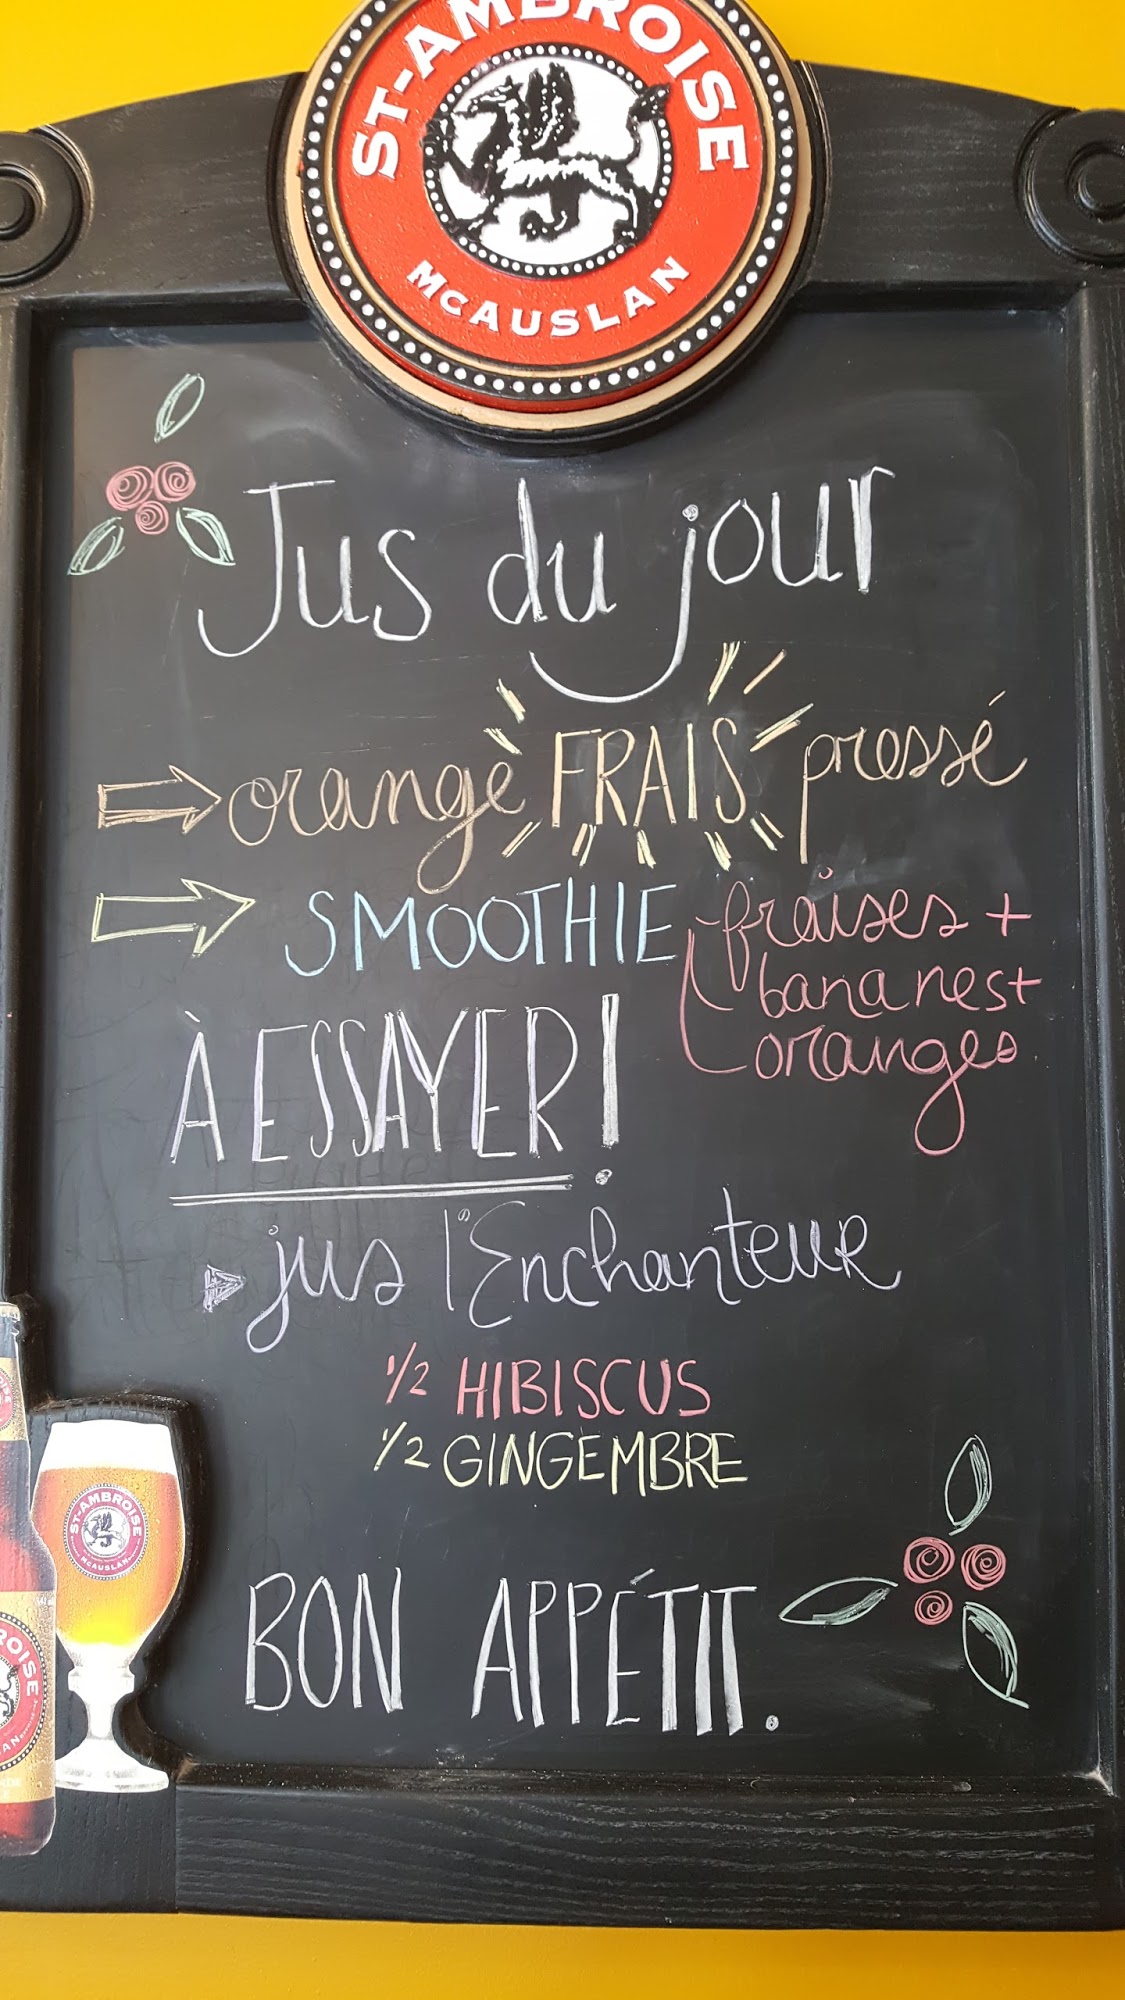 ST-AMBROISE
McAUSLAN
Jus du jour
orange FRAIS pressé
SMOOTHIE - fraises +
bananes +
oranges
À ESSAYER!
jus l'Enchanteur
1/2 HIBISCUS
1/2 GINGEMBRE
ST-AMBROISE
McAUSLAN
BON APPÉTIT.